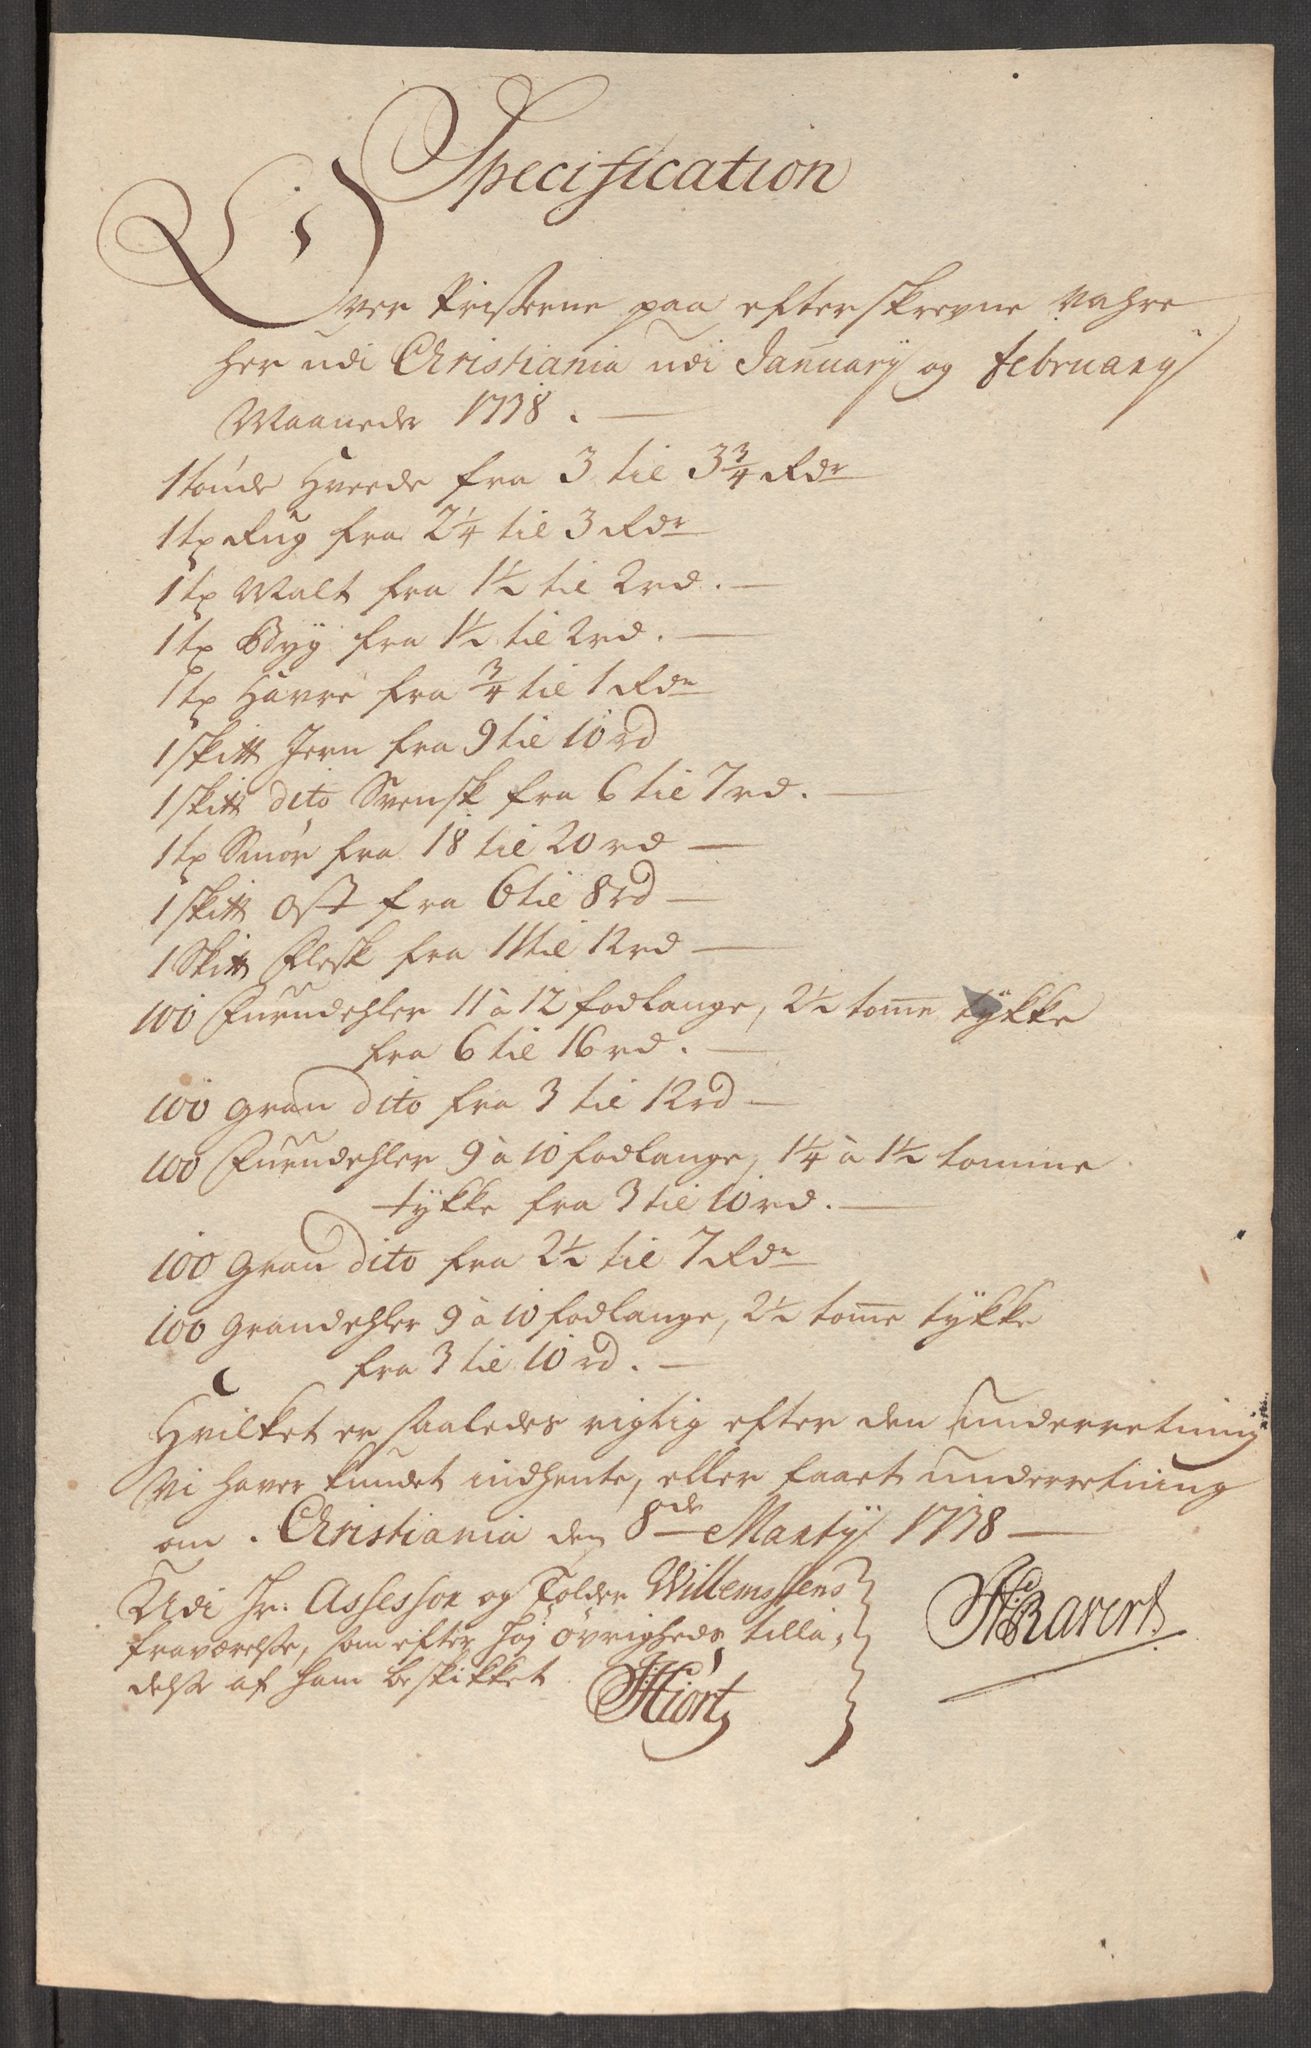 Specification
Over Prisserne paa efterskrevne Vahre
her udi Christiania udi January og February
Maaneder 1738.
1 tønde Hvede fra 3 til 3 3/4 Rdr
1 tn Rug fra 2 1/4 til 3 Rdr
1 tn Malt fra 1 1/2 til 2 rd.
1 tn Byg fra 1 1/2 til 2 rd.
1 tn Havre fra 3/4 til 1 Rdr
1 sk℔ Jern fra 9 til 10 rd
1 sk℔ dito Svensk fra 6 til 7 rd.
1 tn Smør fra 18 til 20 rd
1 sk℔ Ost fra 6 til 8 rd
1 Sk℔ Flesk fra 11 til 12 rd
100 Furudehler 11 à 12 fodlange, 2 1/2 tomme tykke
fra 6 til 16 rd.
100 Gran dito fra 3 til 12 rd
100 Furudehler 9 à 10 fodlange, 1 1/4 à 1 1/2 tomme
tykke fra 3 til 10 rd.
100 Gran dito fra 2 1/2 til 7 Rdr
100 Grandehler 9 à 10 fodlange, 2 1/2 tomme tykke
fra 3 til 10 rd.
Hvilket er saaledes rigtig efter den underretning
Vi haver kundet indhente, eller faaet underretning
om. Christiania den 8de Martÿ 1738
Udi Hr: Assessor og Tolder Willemssens
fraværelse, som efter høj øvrigheds tilla-
delse af ham beskikket
Hiort
Ravert